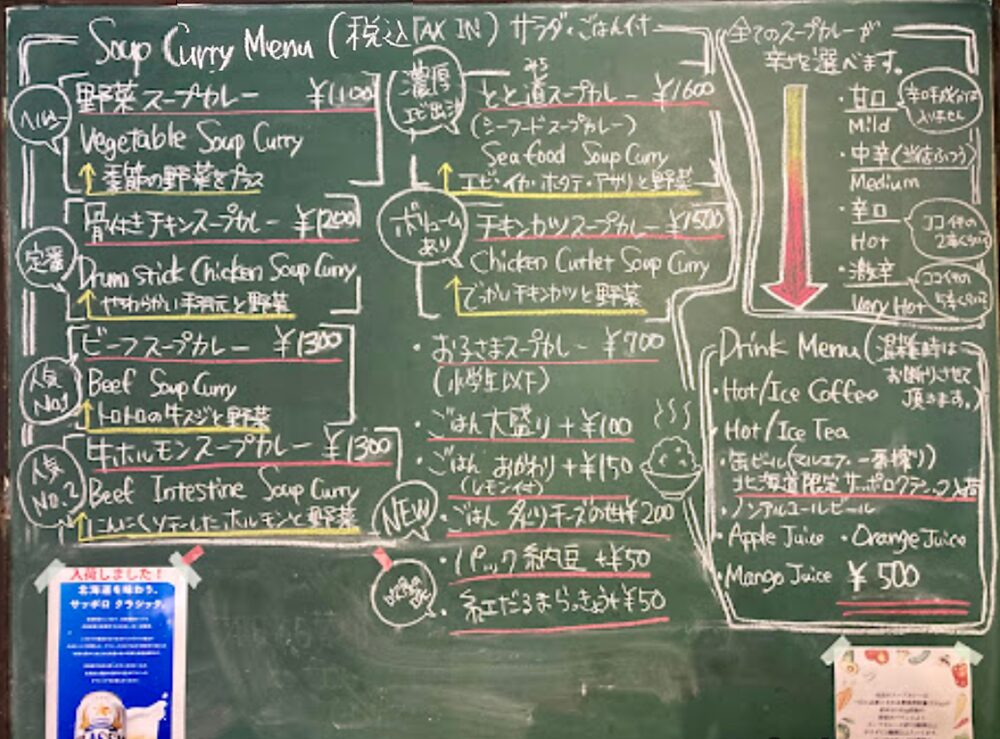 Soup Curry Menu (税込TAX IN) サラダ・ごはん付
ヘルシー
野菜スープカレー ¥1100
Vegetable Soup Curry
季節の野菜をプラス
定番
骨付きチキンスープカレー ¥1200
Drum stick Chicken Soup Curry
やわらかい手羽元と野菜
人気
No.1
ビーフスープカレー ¥1300
Beef Soup Curry
トロトロの牛スジと野菜
人気
No.2
牛ホルモンスープカレー ¥1300
Beef Intestine Soup Curry
にんにくソテーしたホルモンと野菜
濃厚
エビ出汁
みち
とと道スープカレー ¥1600
(シーフードスープカレー)
Seafood Soup Curry
エビ・イカ・ホタテ・アサリと野菜
ボリューム
あり
チキンカツスープカレー ¥1500
Chicken Cutlet Soup Curry
でっかいチキンカツと野菜
・お子さまスープカレー ¥700
(小学生以下)
・ごはん大盛り+¥100
・ごはん おかわり+¥150
(レモン付)
NEW
・ごはん 炙りチーズの世¥200
・1パック納豆 +¥50
・紅だるまらっきょう+¥50
全てのスープカレーが
辛さを選べます。
・甘口
Mild
辛口平成
入りません
・中辛(当店ふつう)
Medium
・辛口
Hot
ココイチの
2辛くらい
・激辛
Very Hot
ココイチの
5辛くらい
Drink Menu (混雑時は
お断りさせて
頂きます。)
・Hot/Ice Coffee
・Hot/Ice Tea
・缶ビール(マルエフ・一番搾り)
北海道限定サッポロクラシック入荷
・ノンアルコールビール
・Apple Juice ・Orange Juice
・Mango Juice ¥500
入荷しました!
北海道を味わう、
サッポロ クラシック。